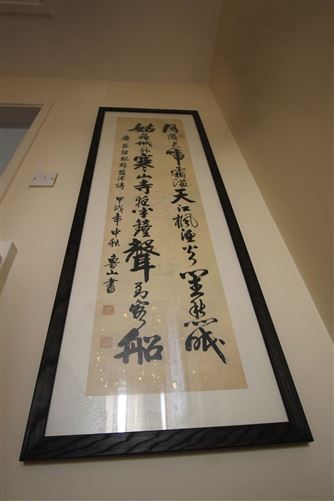 月落烏啼霜滿天江楓漁火對愁眠
姑蘇城外寒山寺夜半鐘聲到客船
唐張繼楓橋夜泊詩 甲戌年中秋 山書